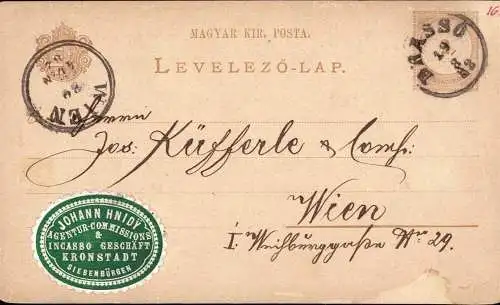 MAGYAR KIR. POSTA.
LEVELEZŐ-LAP.
BRASSÓ
WIEN
Herrn
Jos. Küfferle & Comp.
Wien
I. Weihburggaße Nr 29.
JOHANN HNIDY
AGENTUR-COMMISSIONS
&
INCASSO GESCHÄFT
KRONSTADT
SIEBENBÜRGEN